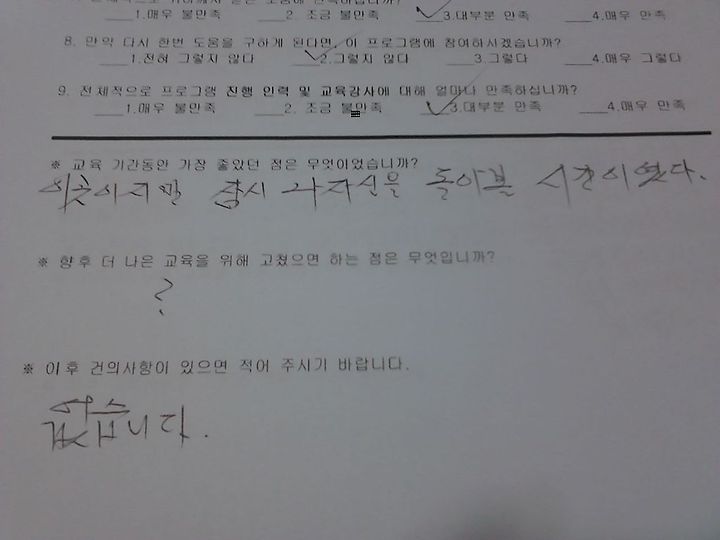 ___1.매우 불만족 ___2. 조금 불만족 ___3.대부분 만족 ___4.매우 만족
8. 만약 다시 한번 도움을 구하게 된다면, 이 프로그램에 참여하시겠습니까?
___1.전혀 그렇지 않다 ___2.그렇지 않다 ___3.그렇다 ___4.매우 그렇다
9. 전체적으로 프로그램 진행 인력 및 교육강사에 대해 얼마나 만족하십니까?
___1.매우 불만족 ___2. 조금 불만족 ___3.대부분 만족 ___4.매우 만족
※ 교육 기간동안 가장 좋았던 점은 무엇이었습니까?
잠시 나자신을 돌아볼 시간이였다.
※ 향후 더 나은 교육을 위해 고쳤으면 하는 점은 무엇입니까?
?
※ 이후 건의사항이 있으면 적어 주시기 바랍니다.
없습니다.